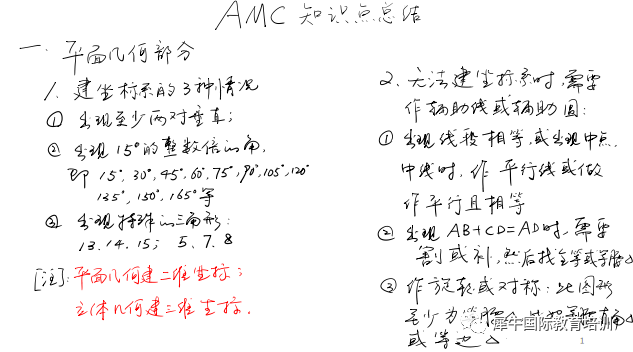 AMC 知识点总结
一. 平面几何部分
1. 建坐标系的3种情况
① 出现至少两对垂直;
② 出现15°的整数倍的角,
即 15°, 30°, 45°, 60°, 75°, 90°, 105°, 120°
135°, 150°, 165° 等
③ 出现特殊的三角形:
13. 14. 15; 5. 7. 8
[注]: 平面几何建二维坐标;
立体几何建三维坐标.
2. 无法建坐标系时, 需要
作辅助线或辅助圆:
① 出现线段相等, 或出现中点.
中线时, 作平行线或做
作平行且相等
② 出现 AB+CD=AD时, 需要
割或补, 然后找全等或等腰△
③ 作旋转或对称: 此图形
至少为等腰△, 比如等腰直角△
或等边△
犀牛国际教育培训
1